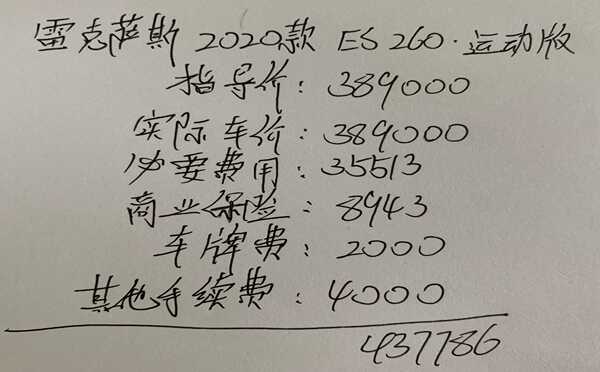 雷克萨斯 2020款 ES 260·运动版
指导价：389000
实际车价：389000
必要费用：35513
商业保险：8943
车牌费：2000
其他手续费：4000
437786